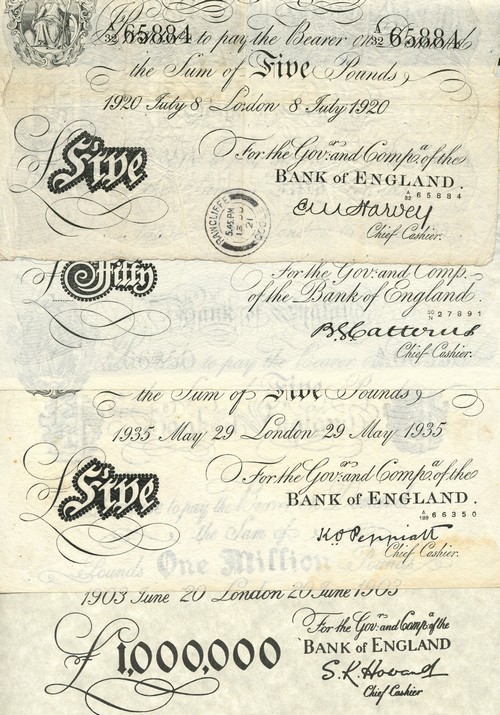 A/32 65884 to pay the Bearer on A/32 65884
the Sum of Five Pounds
1920 July 8 London 8 July 1920
£Five
For the Govr. and Compa. of the
BANK of ENGLAND.
A/32 65884
E M Harvey
Chief Cashier.
RAWCLIFFE
5.45 PM
21
£Fifty
For the Gov. and Comp.
of the Bank of England.
50/N 27891
B G Catterns
Chief Cashier.
the Sum of Five Pounds
1935 May 29 London 29 May 1935
£Five
For the Govr. and Compa. of the
BANK of ENGLAND.
A/188 66350
K O Peppiatt
Chief Cashier.
One Million
1903 June 20 London 20 June 1903
£1,000,000
For the Govr. and Compa. of the
BANK of ENGLAND
S.K. Howard
Chief Cashier